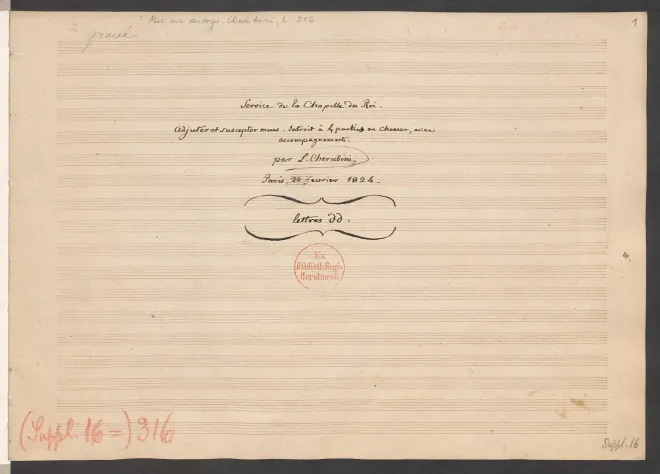 Mus. ms. autogr. Cherubini, L. 316
1
2
gravé
Service de la Chapelle du Roi.
Adjutor et susceptor meus. Introit à 4 parties en choeur, avec
accompagnement.
par L. Cherubini
Paris, février 1824.
lettres dd.
Ex
Biblioth. Regia
Berolinensi
(Suppl. 16 =) 316
Suppl. 16